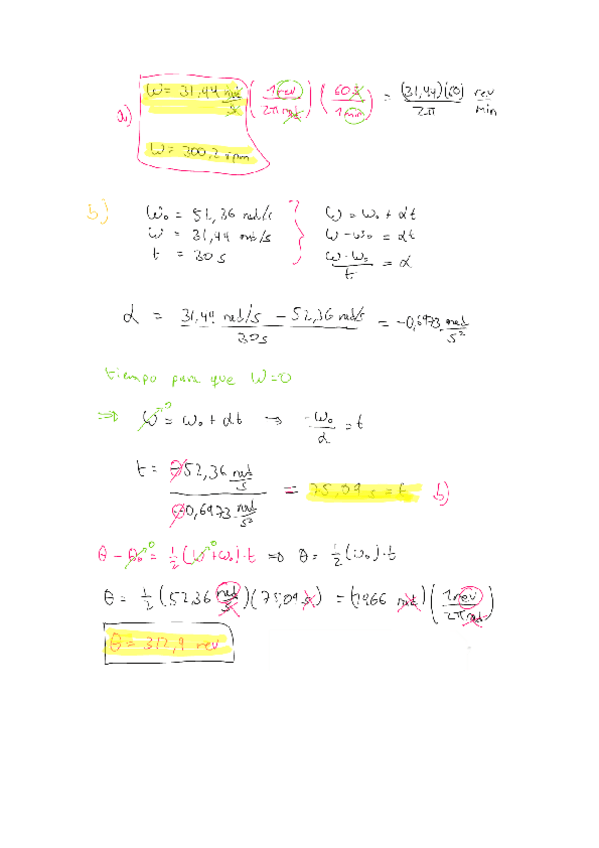 a) ω = 31,44 rad/s (1 rev / 2π rad) (60 s / 1 min) = (31,44)(60) / 2π rev/min
ω = 300,2 rpm
b) ω₀ = 51,36 rad/s } ω = ω₀ + αt
ω = 31,44 rad/s ω - ω₀ = αt
t = 30 s (ω - ω₀) / t = α
α = (31,44 rad/s - 52,36 rad/s) / 30 s = -0,6973 rad/s²
tiempo para que ω=0
⇒ ω⁰ = ω₀ + αt → -ω₀ / α = t
t = -52,36 rad/s / -0,6973 rad/s² = 75,09 s = t b)
θ - θ₀⁰ = 1/2 (ω⁰ + ω₀) · t ⇒ θ = 1/2 (ω₀) · t
θ = 1/2 (52,36 rad/s) (75,09 s) = (1966 rad) (1 rev / 2π rad)
θ = 312,9 rev